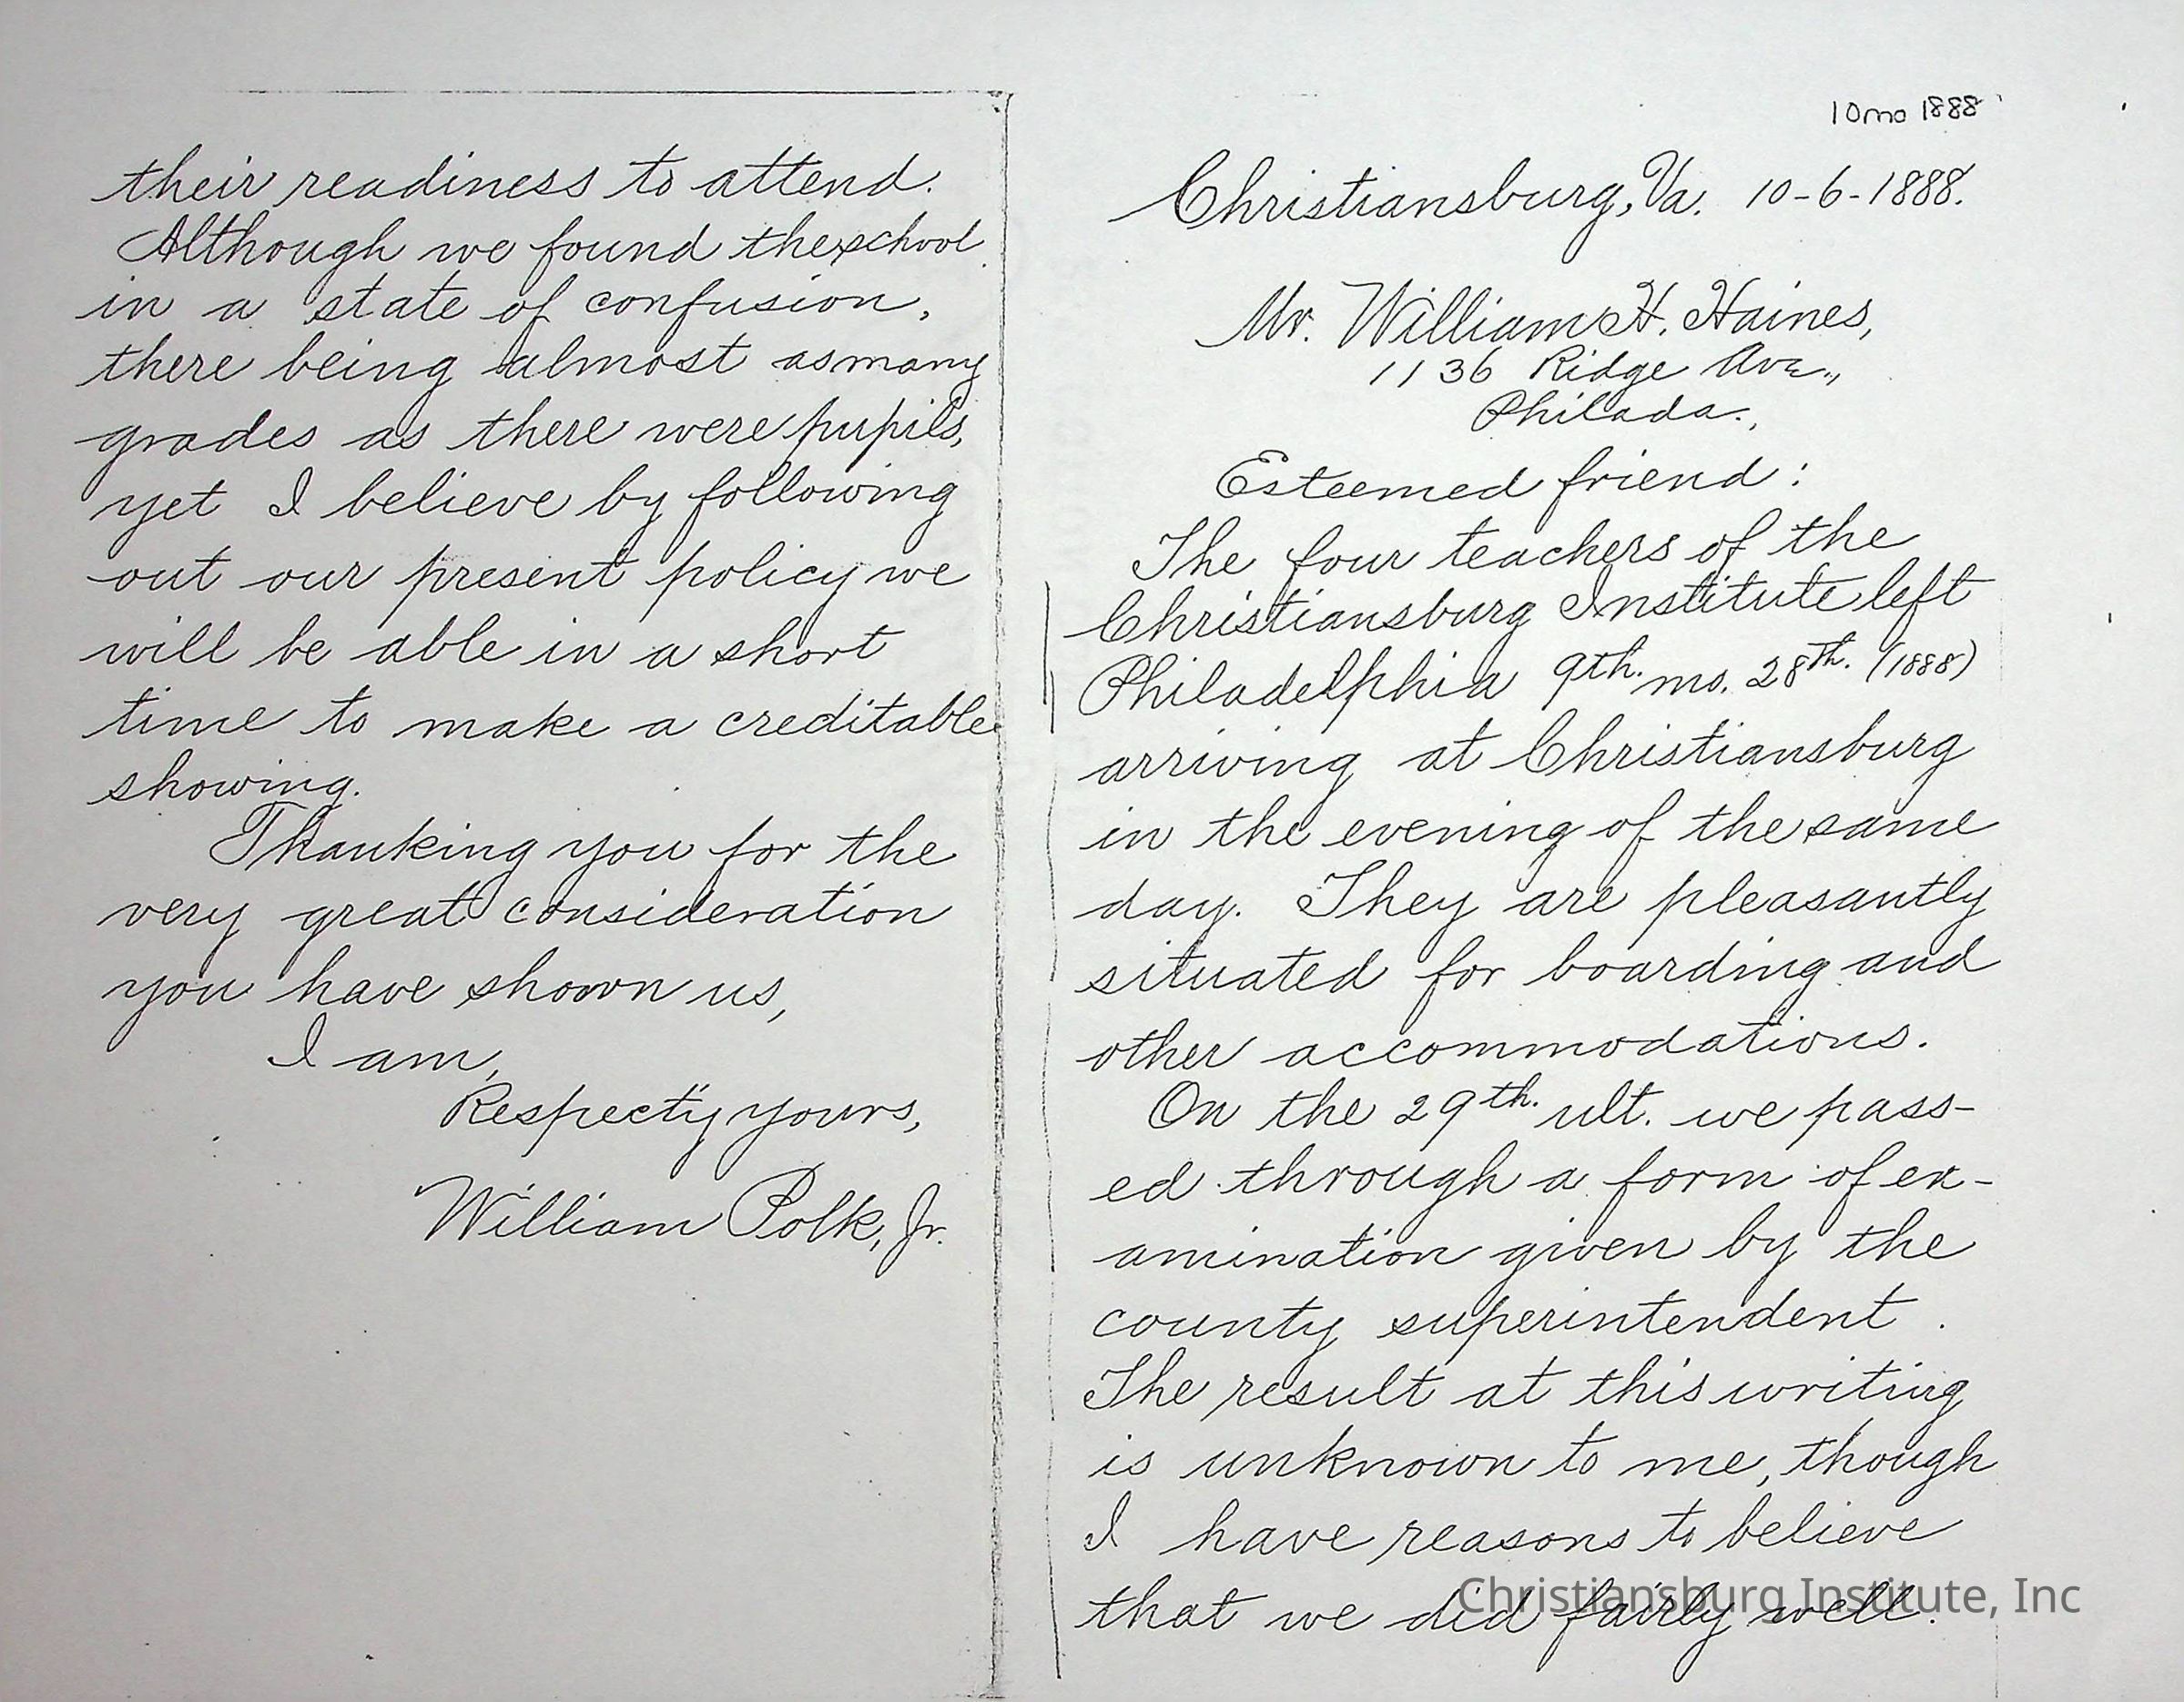 10mo 1888
Christiansburg, Va. 10-6-1888.
Mr. William H. Haines,
1136 Ridge Ave.,
Philada.,
Esteemed friend:
The four teachers of the
Christiansburg Institute left
Philadelphia 9th. mo. 28th. (1888)
arriving at Christiansburg
in the evening of the same
day. They are pleasantly
situated for boarding and
other accommodations.
On the 29th. ult. we pass-
ed through a form of ex-
amination given by the
county superintendent.
The result at this writing
is unknown to me, though
I have reasons to believe
that we did fairly well.
their readiness to attend.
Although we found the school
in a state of confusion,
there being almost as many
grades as there were pupils,
yet I believe by following
out our present policy we
will be able in a short
time to make a creditable
showing.
Thanking you for the
very great consideration
you have shown us,
I am,
Respect'y yours,
William Polk, Jr.
Christiansburg Institute, Inc